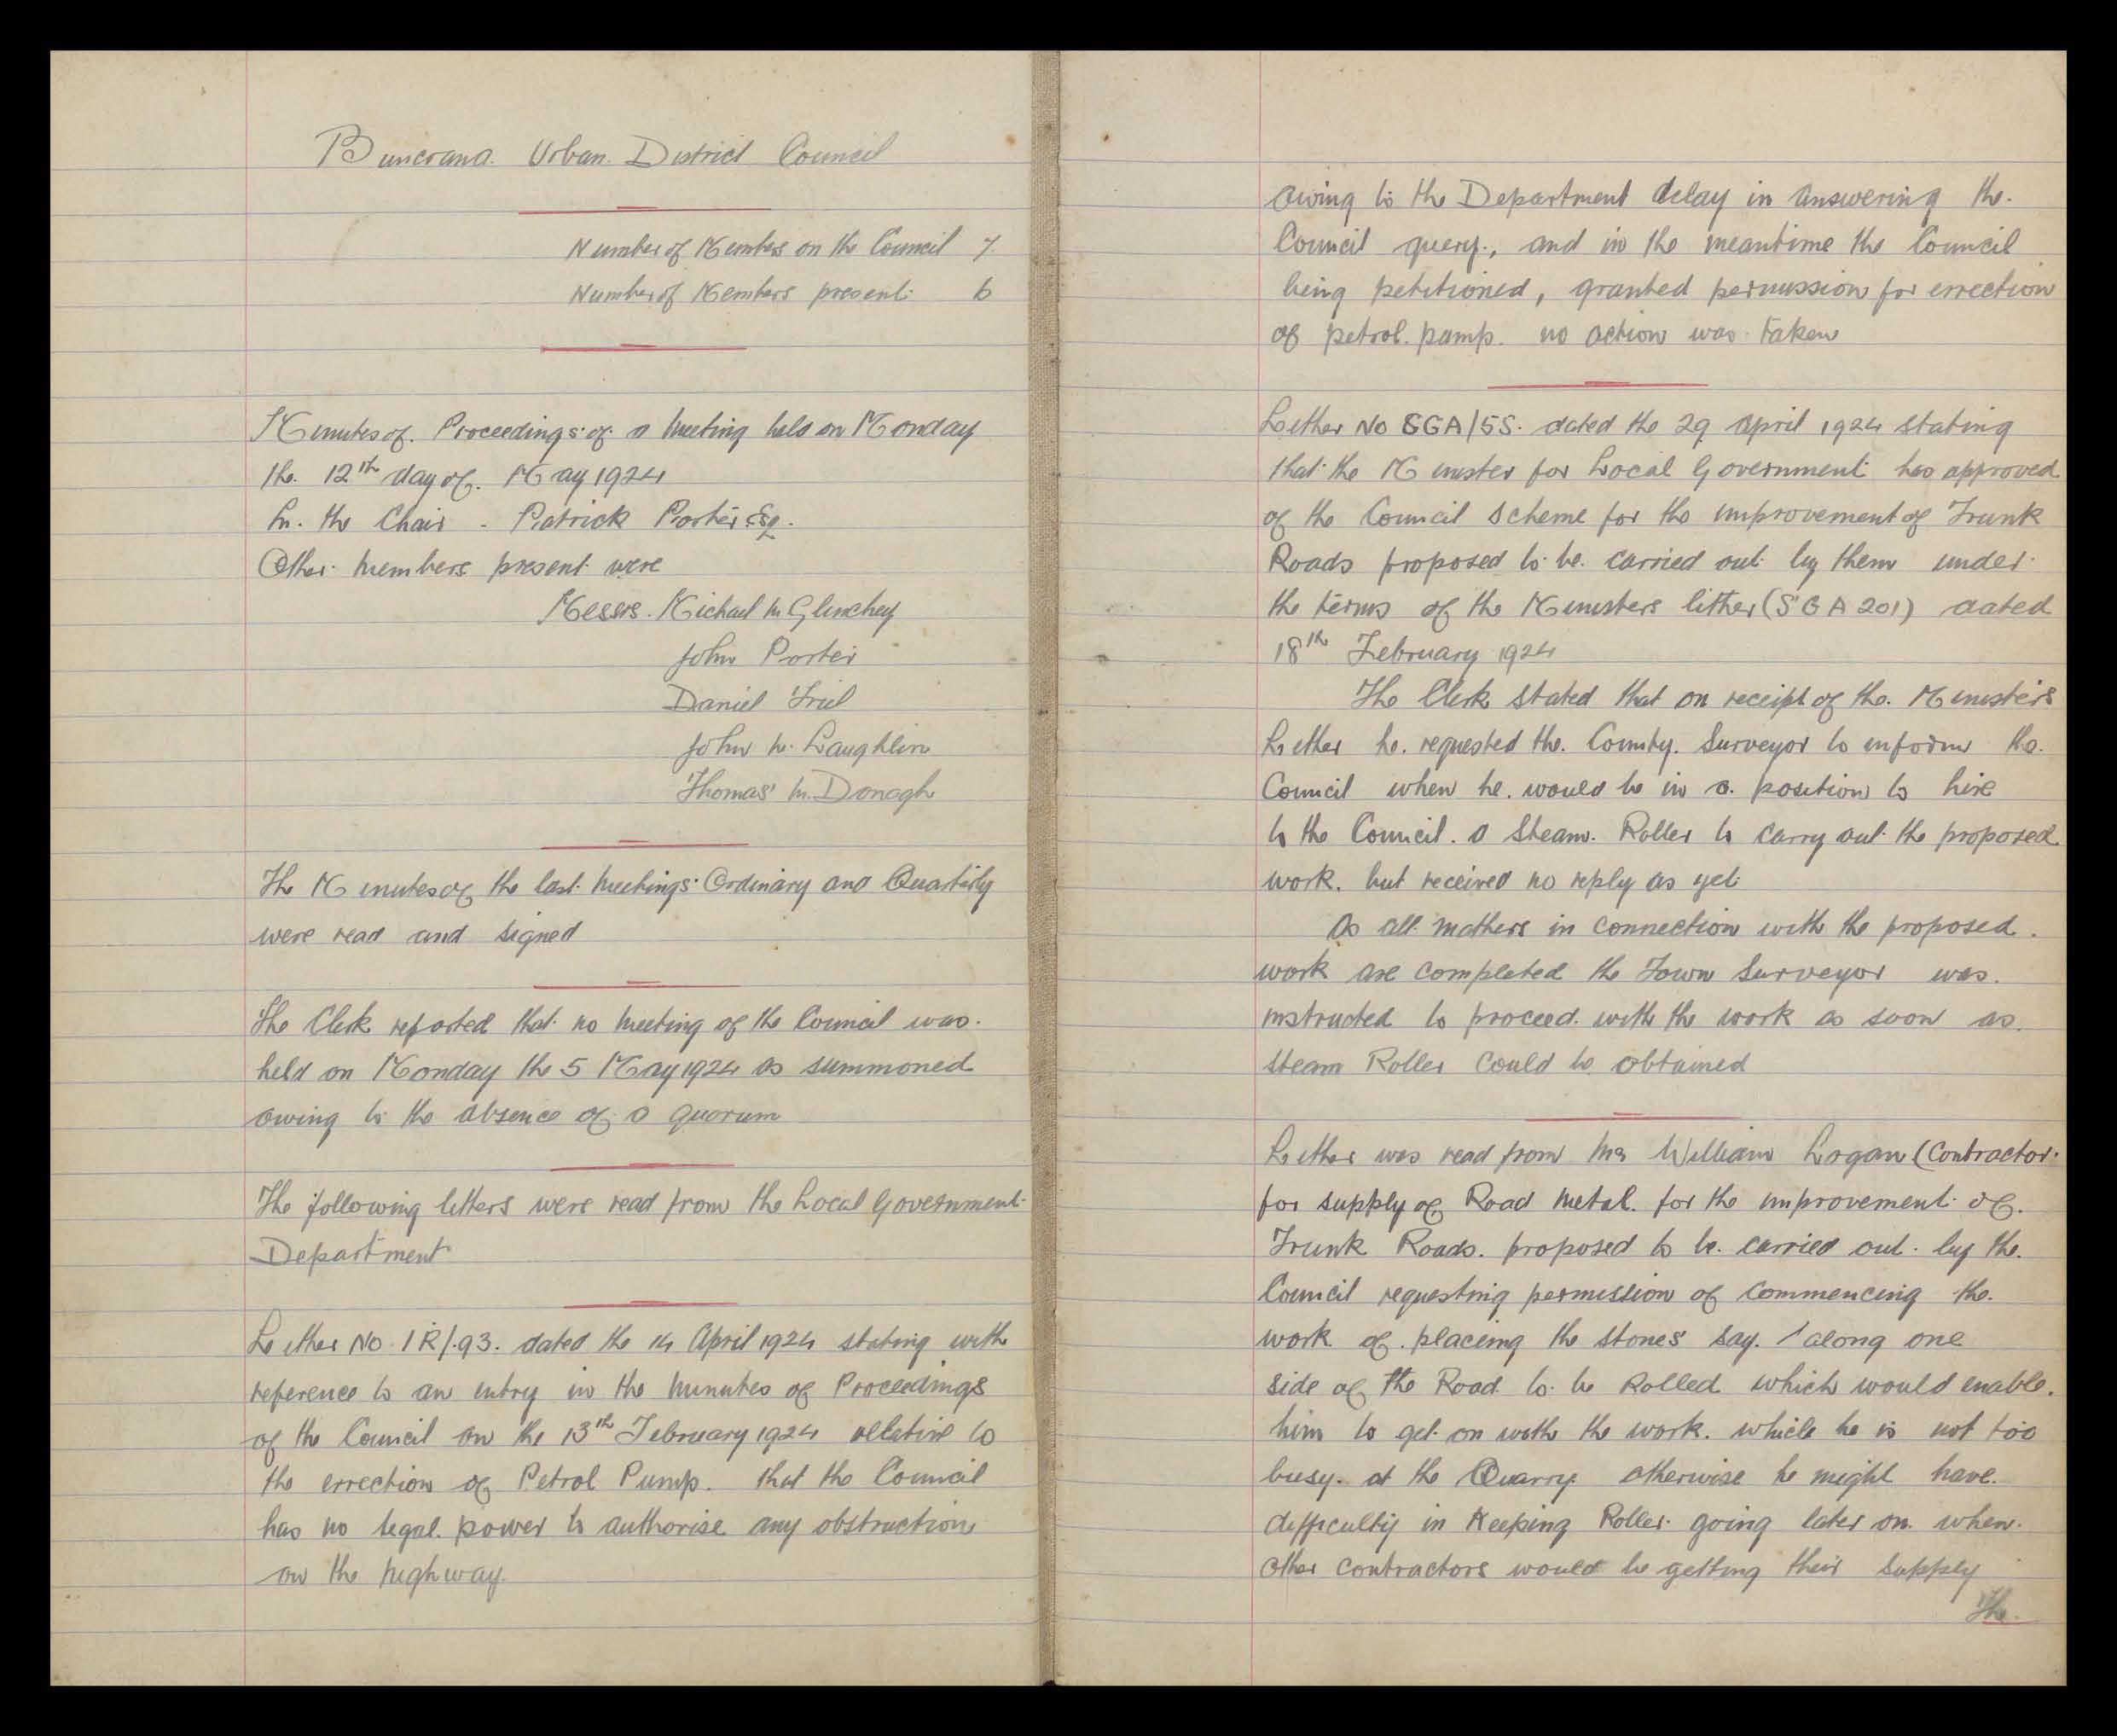 Buncrana Urban District Council
Number of Members on the Council 7
Number of Members present 6
Minutes of Proceedings of a Meeting held on Monday
the 12th day of May 1924
In the Chair - Patrick Porter Esq.
Other Members present were
Messrs. Michael McGlinchey
John Porter
Daniel Friel
John McLaughlin
Thomas McDonagh
The Minutes of the last Meetings Ordinary and Quarterly
were read and signed
The Clerk reported that no Meeting of the Council was
held on Monday the 5 May 1924 as summoned
owing to the absence of a quorum
The following letters were read from the Local Government
Department
Letter No. IR/.93. dated the 14 April 1924 stating with
reference to an entry in the Minutes of Proceedings
of the Council on the 13th February 1924 relative to
the errection of Petrol Pump. that the Council
has no legal power to authorise any obstruction
on the highway.
owing to the Department delay in answering the
Council query., and in the meantime the Council
being petitioned, granted permission for errection
of petrol pump. no action was taken
Letter No SGA/5S. dated the 29 April 1924 stating
that the Minister for Local Government has approved
of the Council Scheme for the improvement of Trunk
Roads proposed to be carried out by them under
the terms of the Ministers letter (SGA 201) dated
18th February 1924
The Clerk stated that on receipt of the Ministers
Letter he requested the County Surveyor to inform the
Council when he would be in a position to hire
to the Council a Steam Roller to carry out the proposed
work. but received no reply as yet
As all matters in connection with the proposed
work are completed the Town Surveyor was
instructed to proceed with the work as soon as
steam Roller could be obtained
Letter was read from Mr William Logan (Contractor
for supply of Road Metal for the improvement of
Trunk Roads. proposed to be carried out by the
Council requesting permission of commencing the
work of placeing the stones say along one
side of the Road to be Rolled which would enable
him to get on with the work. while he is not too
busy at the Quarry otherwise he might have
difficulty in Keeping Roller going later on when
other contractors would be getting their supply
The